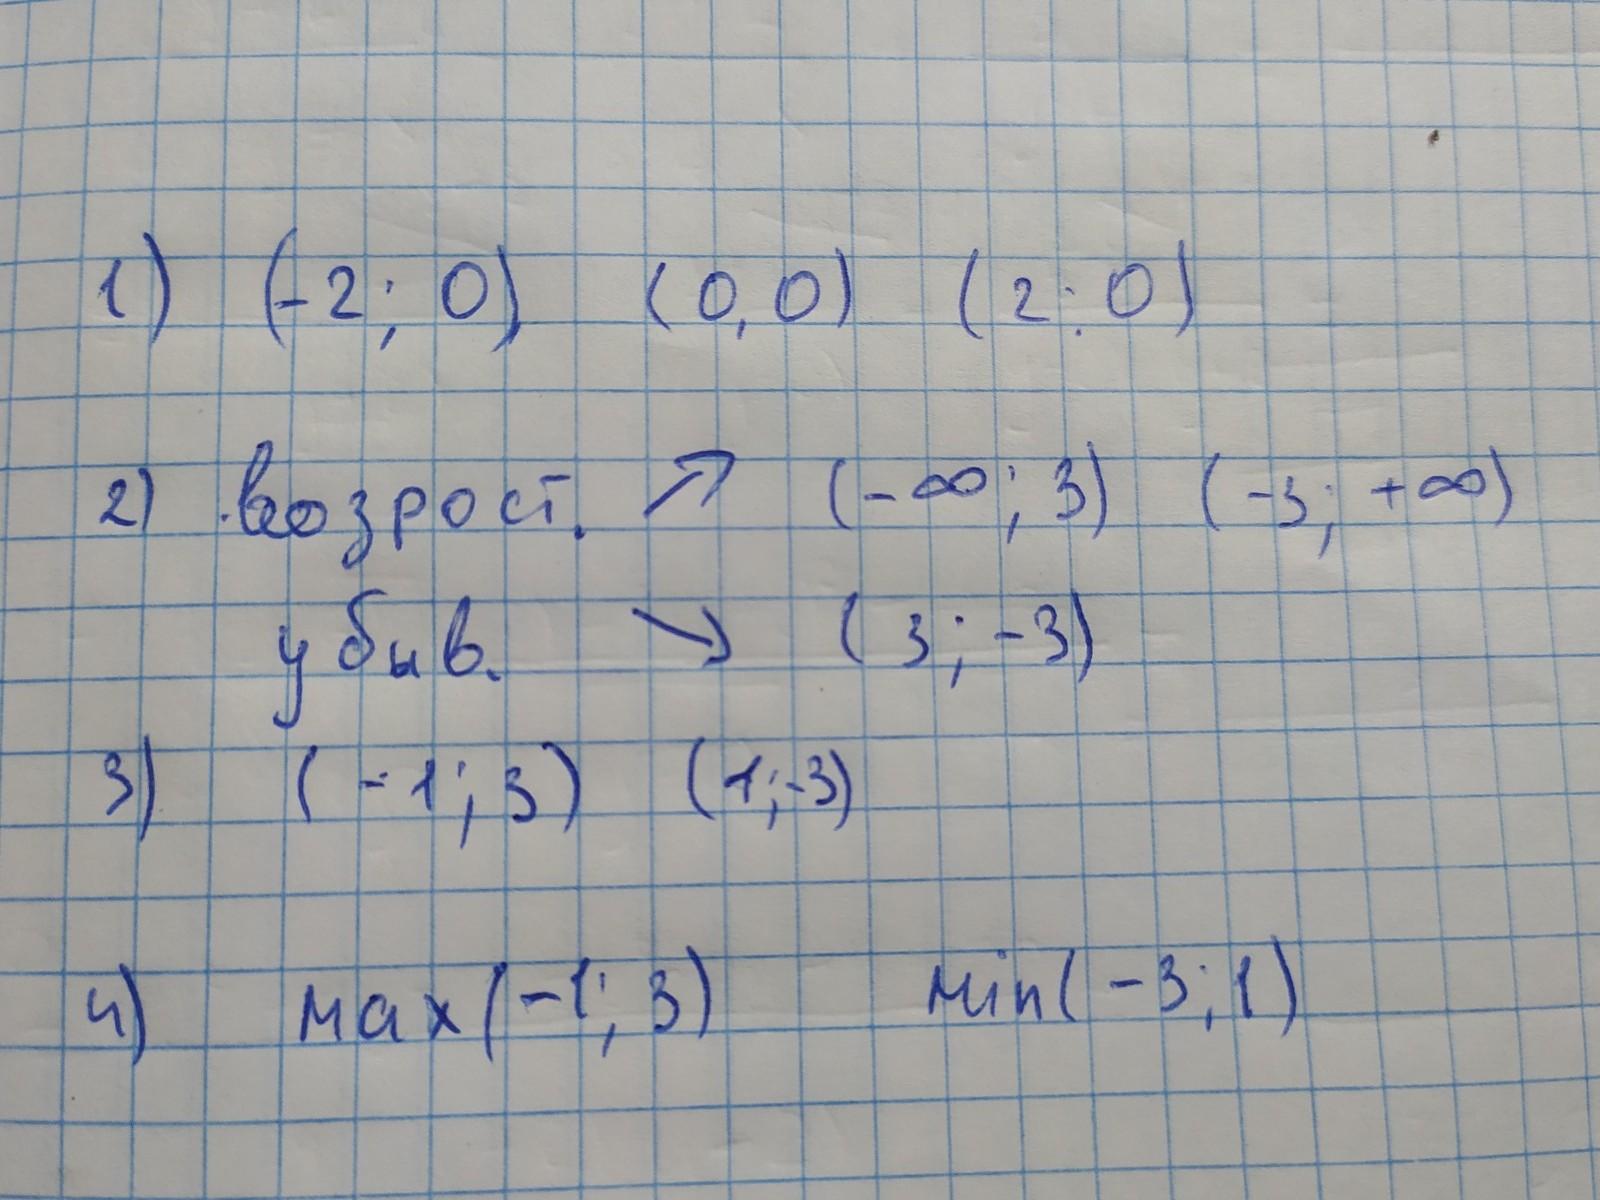 1) (-2; 0) (0,0) (2; 0)
2) возрост. ↗ (-∞; 3) (-3; +∞)
убыв. ↘ (3; -3)
3) (-1; 3) (1; -3)
4) max(-1; 3) min(-3; 1)